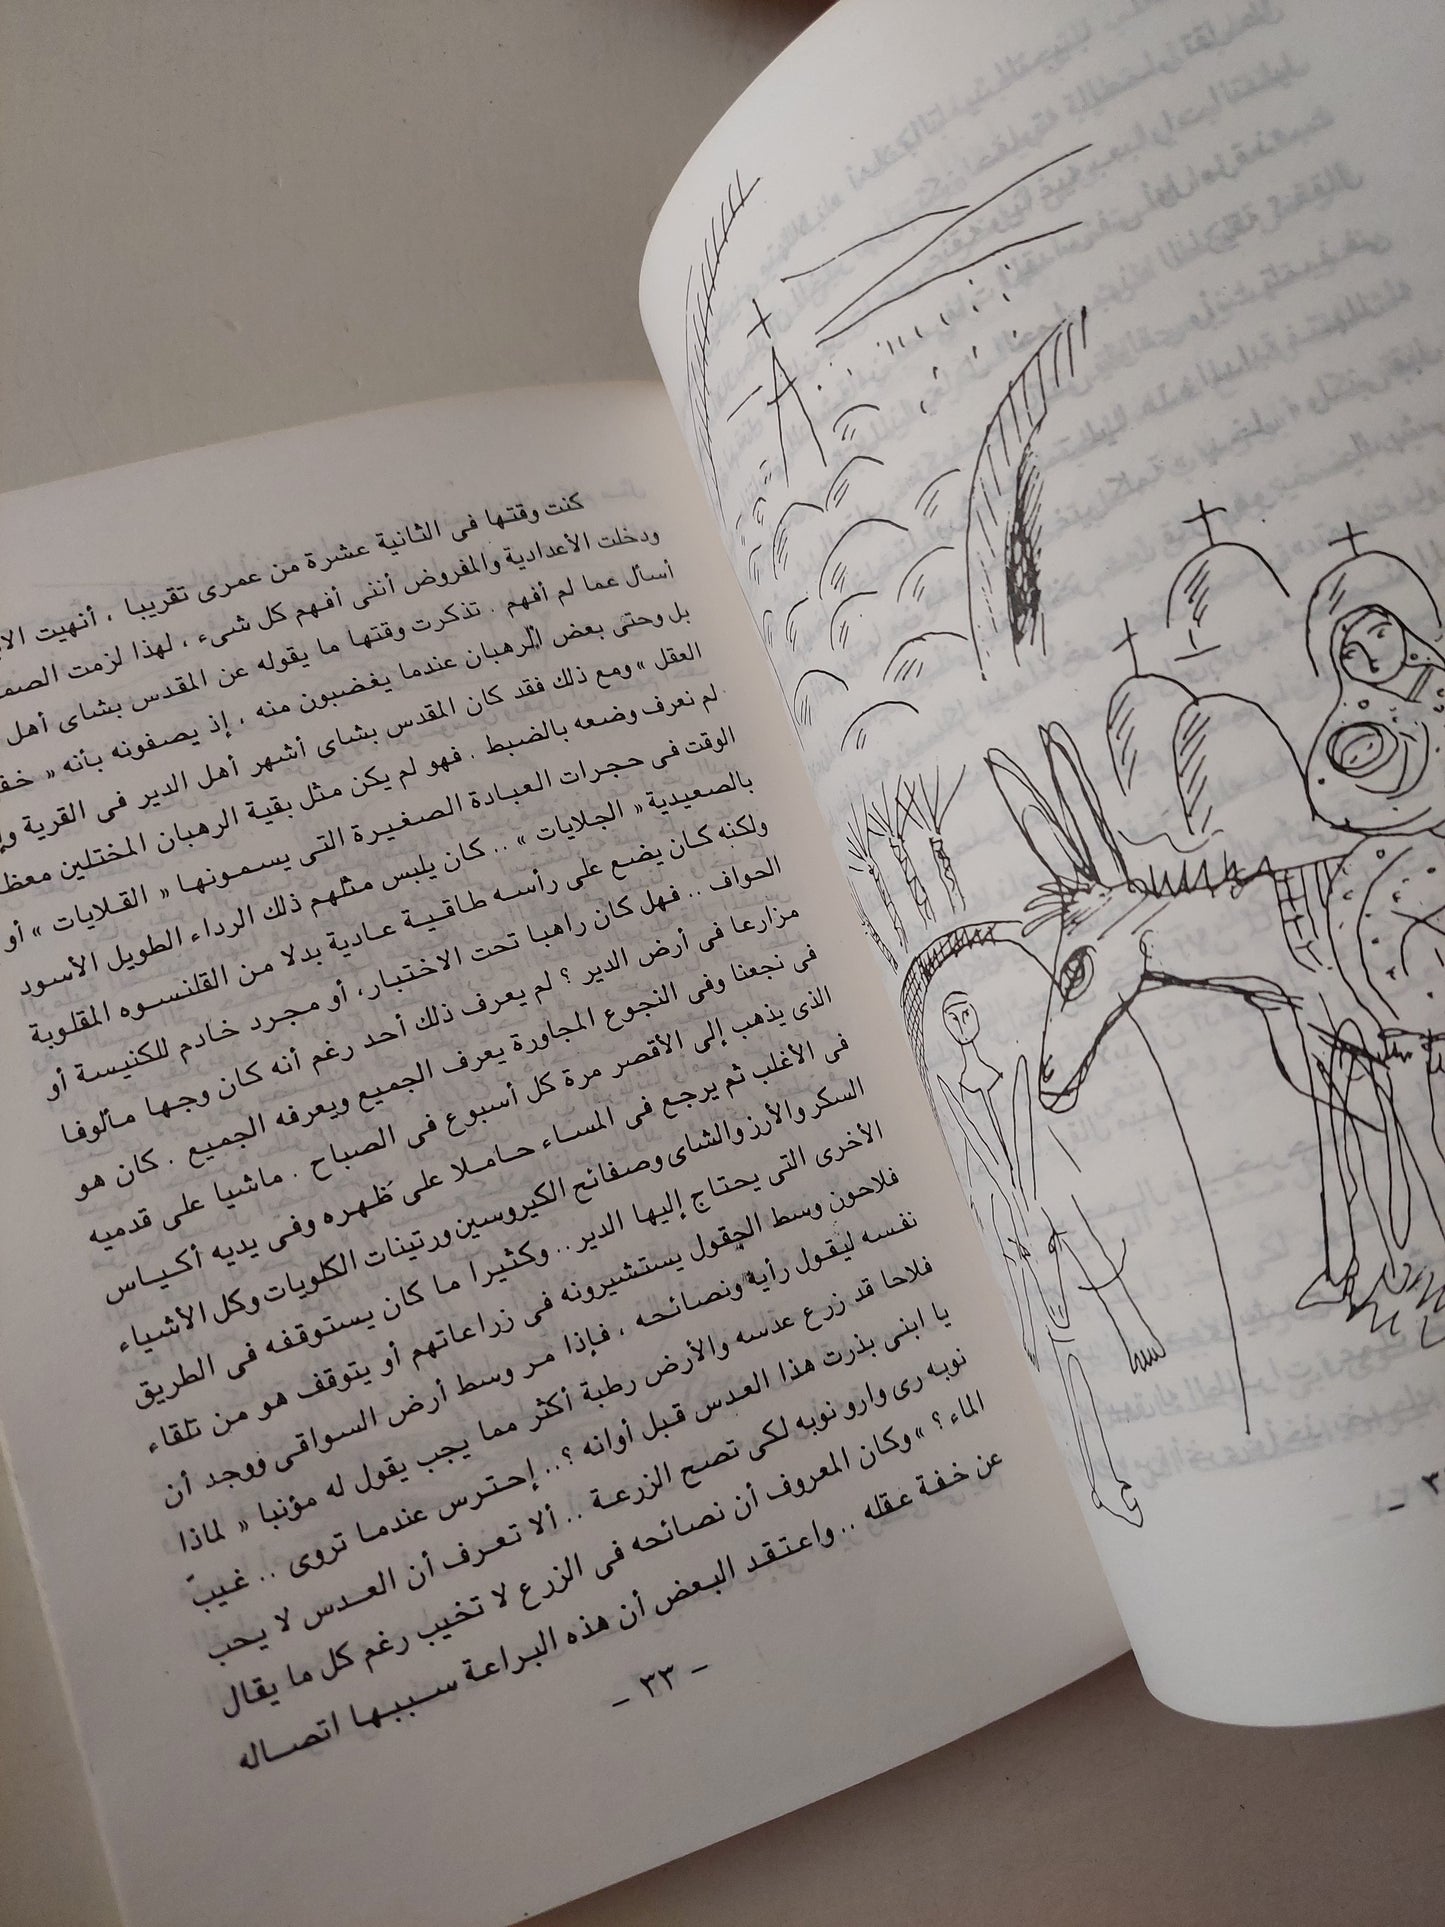 كنت وقتها فى الثانية عشرة من عمرى تقريبا ، أنهيت
ودخلت الأعدادية والمفروض أننى أفهم كل شىء ، لهذا لزمت
أسأل عما لم أفهم . تذكرت وقتها ما يقوله عن المقدس بشاى أهل
بل وحتى بعض الرهبان عندما يغضبون منه ، إذ يصفونه بأنه «
العقل » ومع ذلك فقد كان المقدس بشاى أشهر أهل الدير فى القرية
لم نعرف وضعه بالضبط . فهو لم يكن مثل بقية الرهبان المختلين
الوقت فى حجرات العبادة الصغيرة التى يسمونها « القلايات » أو
بالصعيدية « الجلايات » .. كان يلبس مثلهم ذلك الرداء الطويل الأسود
ولكنه كان يضع على رأسه طاقية عادية بدلا من القلنسوه المقلوبة
الحواف .. فهل كان راهبا تحت الاختبار، أو مجرد خادم للكنيسة أو
مزارعا فى أرض الدير ؟ لم يعرف ذلك أحد رغم أنه كان وجها مألوفا
فى نجعنا وفى النجوع المجاورة يعرف الجميع ويعرفه الجميع . كان هو
الذى يذهب إلى الأقصر مرة كل أسبوع فى الصباح . ماشيا على قدميه
فى الأغلب ثم يرجع فى المساء حاملا على ظهره وفى يديه أكياس
السكر والأرز والشاى وصفائح الكيروسين ورتينات الكلويات وكل الأشياء
الأخرى التى يحتاج إليها الدير .. وكثيرا ما كان يستوقفه فى الطريق
فلاحون وسط الحقول يستشيرونه فى زراعاتهم أو يتوقف هو من تلقاء
نفسه ليقول رأيه ونصائحه ، فإذا مر وسط أرض السواقى ووجد أن
فلاحا قد زرع عدسه والأرض رطبة أكثر مما يجب يقول له مؤنبا « لماذا
يا ابنى بذرت هذا العدس قبل أوانه ؟.. إحترس عندما تروى .. غيبّ
نوبه رى وارو نوبه لكى تصح الزرعة .. ألا تعرف أن العدس لا يحب
الماء ؟ » وكان المعروف أن نصائحه فى الزرع لا تخيب رغم كل ما يقال
عن خفة عقله .. واعتقد البعض أن هذه البراعة سببها اتصاله
- ٣٣ -